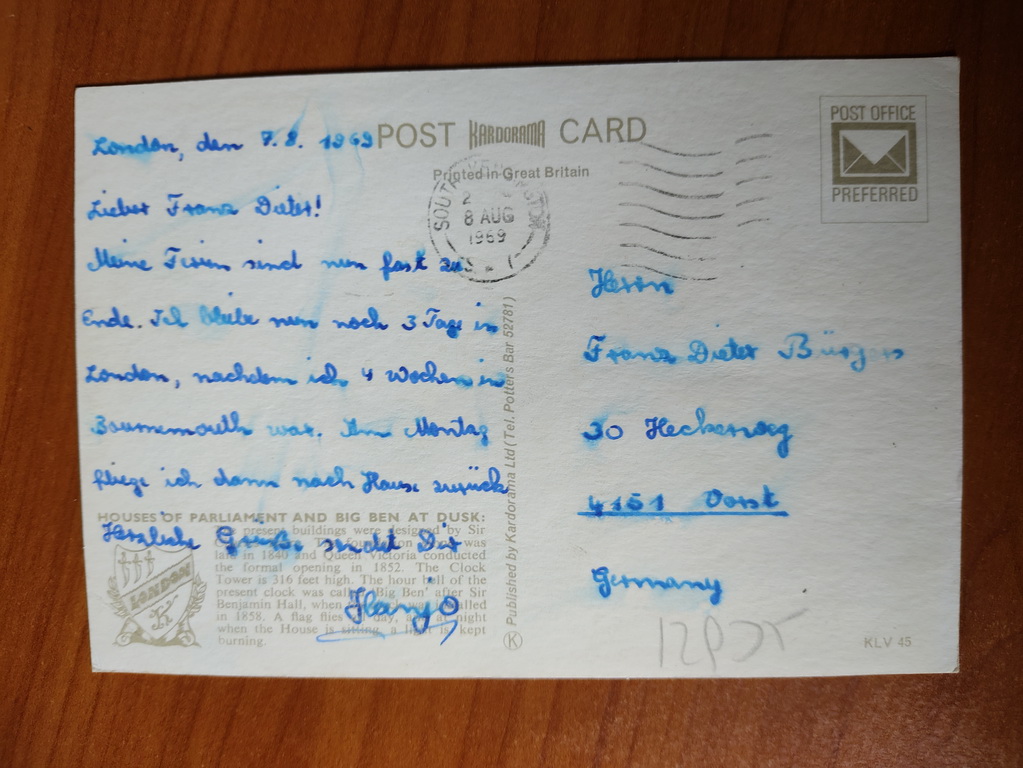 London, den 7.8. 1969
Lieber Franz Dieter!
Meine Ferien sind nun fast zu
Ende. Ich bleibe nun noch 3 Tage in
London, nachdem ich 4 Wochen in
Bournemouth war. Am Montag
fliege ich dann nach Hause zurück
Herzliche Grüße sendet Dir
Hanjo
POST KARDORAMA CARD
Printed in Great Britain
8 AUG
1969
POST OFFICE
PREFERRED
Herrn
Franz Dieter Bürgers
30 Heckerweg
4151 Vorst
Germany
HOUSES OF PARLIAMENT AND BIG BEN AT DUSK:
present buildings were designed by Sir
was
laid in 1840 and Queen Victoria conducted
the formal opening in 1852. The Clock
Tower is 316 feet high. The hour bell of the
present clock was called 'Big Ben' after Sir
Benjamin Hall, when
in 1858. A flag flies day, night
when the House is sitting, a light is kept
burning.
LONDON
Published by Kardorama Ltd (Tel. Potters Bar 52781)
K
KLV 45